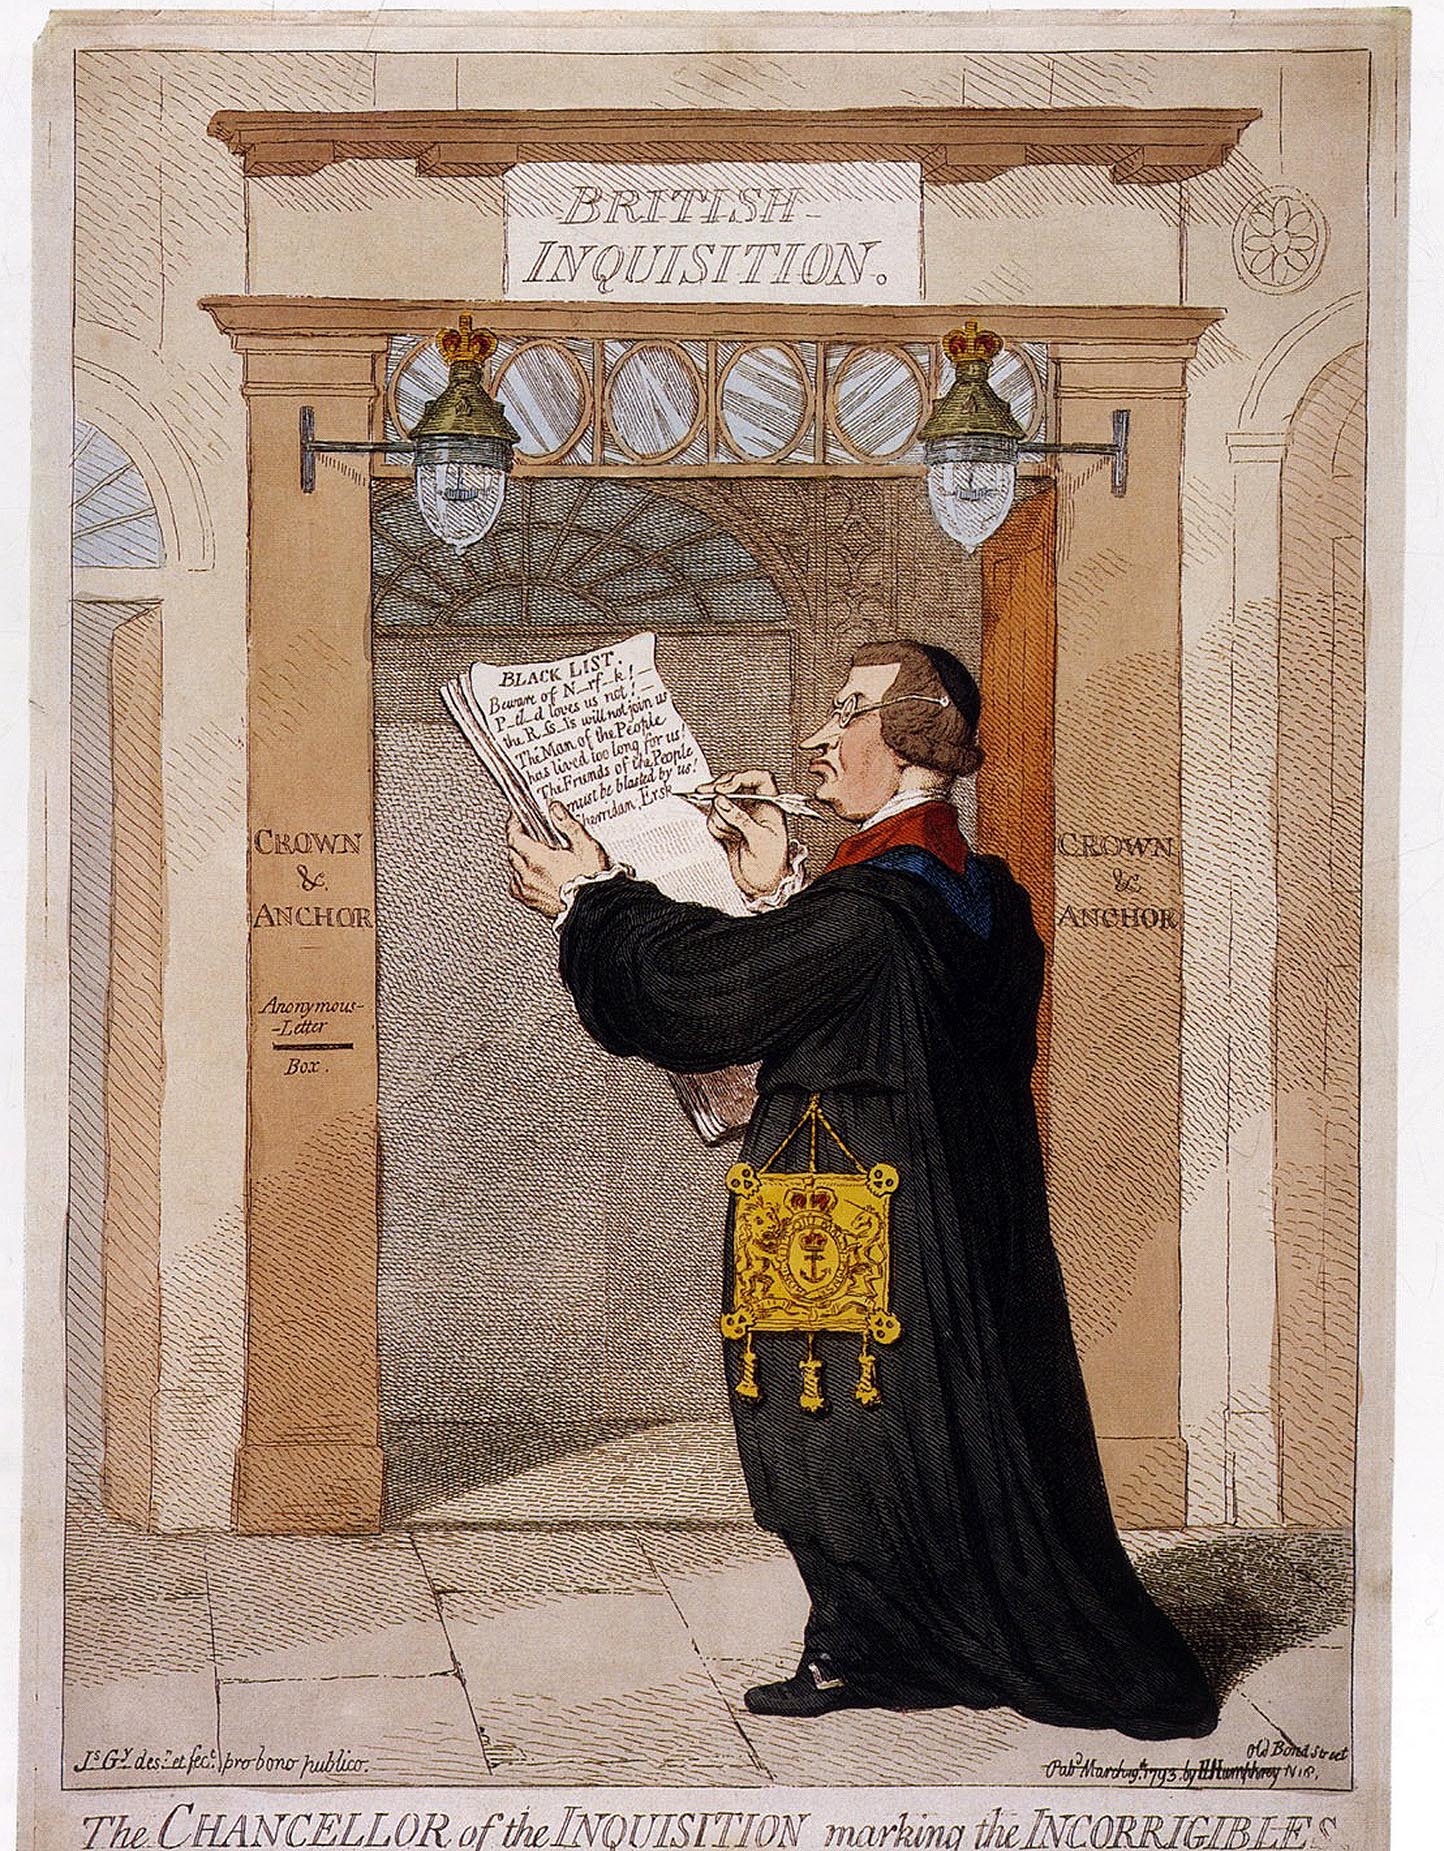 BRITISH-
INQUISITION.
BLACK LIST.
Beware of N_rf_k! _
P_tl_d loves us not! _
the R_ss_ls will not join us
The Man of the People
has lived too long for us!
The Friends of the People
must be blasted by us!
Sherridan, Ersk
CROWN
&
ANCHOR
Anonymous-
-Letter
Box.
CROWN
&
ANCHOR
Js Gy desn et fect pro bono publico.
Old Bond Street
Pubd March 19th 1793 by H Humphrey N 18.
The CHANCELLOR of the INQUISITION marking the INCORRIGIBLES